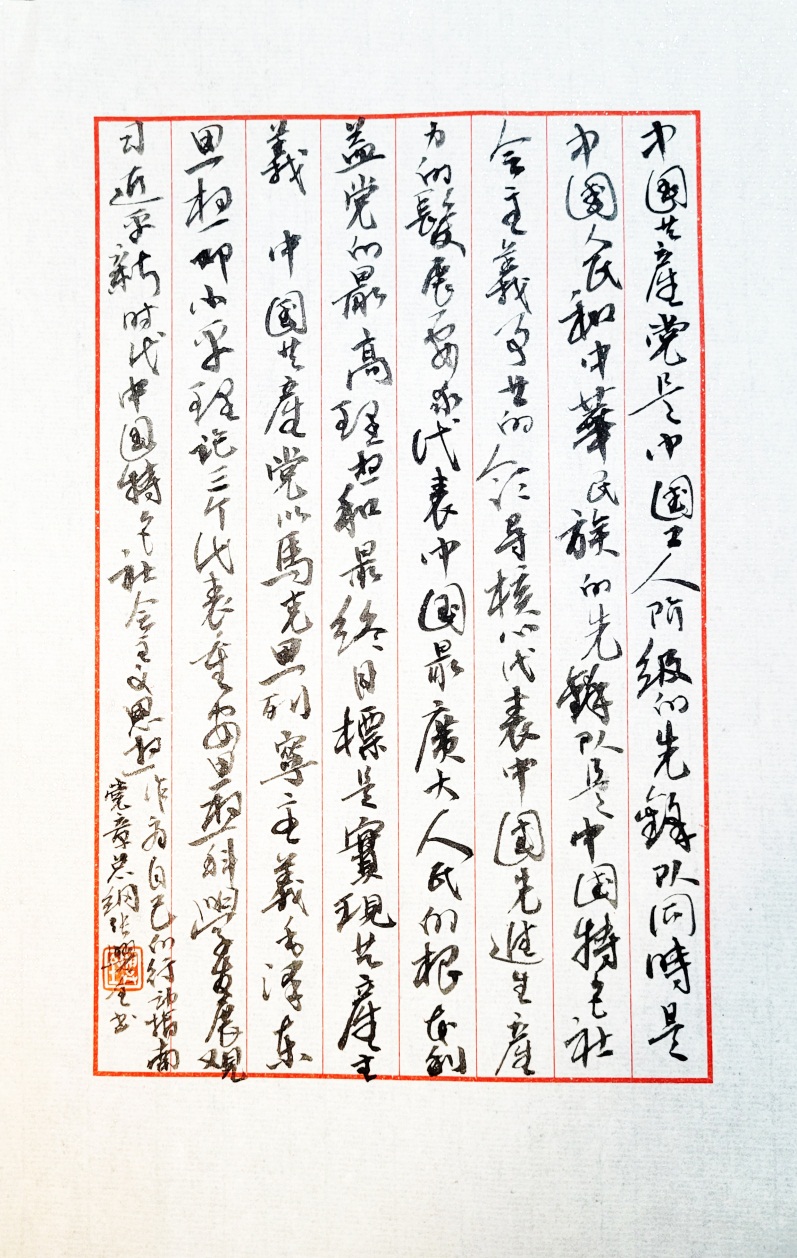 中国共産党是中国工人階级的先鋒队同時是
中國人民和中華民族的先鋒队是中国特色社
会主義事业的领导核心代表中国先進生産
力的發展要求代表中国最廣大人民的根本利
益党的最高理想和最终目標是實現共産主
義 中國共産党以馬克思列寧主義毛澤东
思想邓小平理论三个代表重要思想科學发展观
习近平新时代中国特色社会主义思想作为自己的行动指南
党章总纲